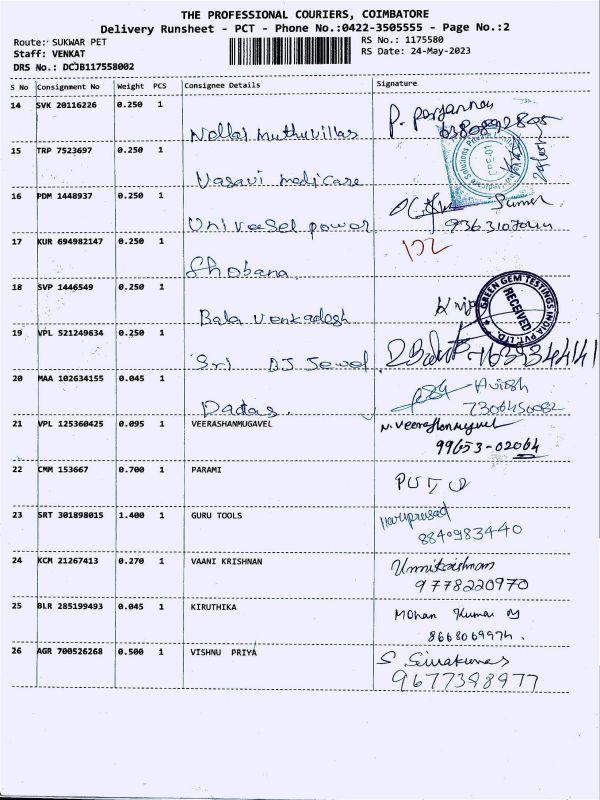 THE PROFESSIONAL COURIERS, COIMBATORE
Delivery Runsheet - PCT - Phone No.:0422-3505555 - Page No.:2
Route: SUKWAR PET RS No.: 1175580
Staff: VENKAT RS Date: 24-May-2023
DRS No.: DCJB117558002
S No Consignment No Weight PCS Consignee Details Signature
14 SVK 20116226 0.250 1 Nellai Muthuvillas
15 TRP 7523697 0.250 1 Vasavi medicare
16 PDM 1448937 0.250 1 Universel power
17 KUR 694982147 0.250 1 Shobana
18 SVP 1446549 0.250 1 Bala Venkadesh
GREEN GEM TESTINGS INDIA PVT. LTD.
RECEIVED
19 VPL 521249634 0.250 1 Sri BJ Jewel
20 MAA 102634155 0.045 1 Dadas.
21 VPL 125360425 0.095 1 VEERASHANMUGAVEL N. Veerashanmugavel
99653-02064
22 CMM 153667 0.700 1 PARAMI
23 SRT 301898015 1.400 1 GURU TOOLS Hariprasad
8840983440
24 KCM 21267413 0.270 1 VAANI KRISHNAN Unnikrishnan
9778220970
25 BLR 285199493 0.045 1 KIRUTHIKA Mohan Kumar M
8668069974.
26 AGR 700526268 0.500 1 VISHNU PRIYA S. Sivakumar
9677398977